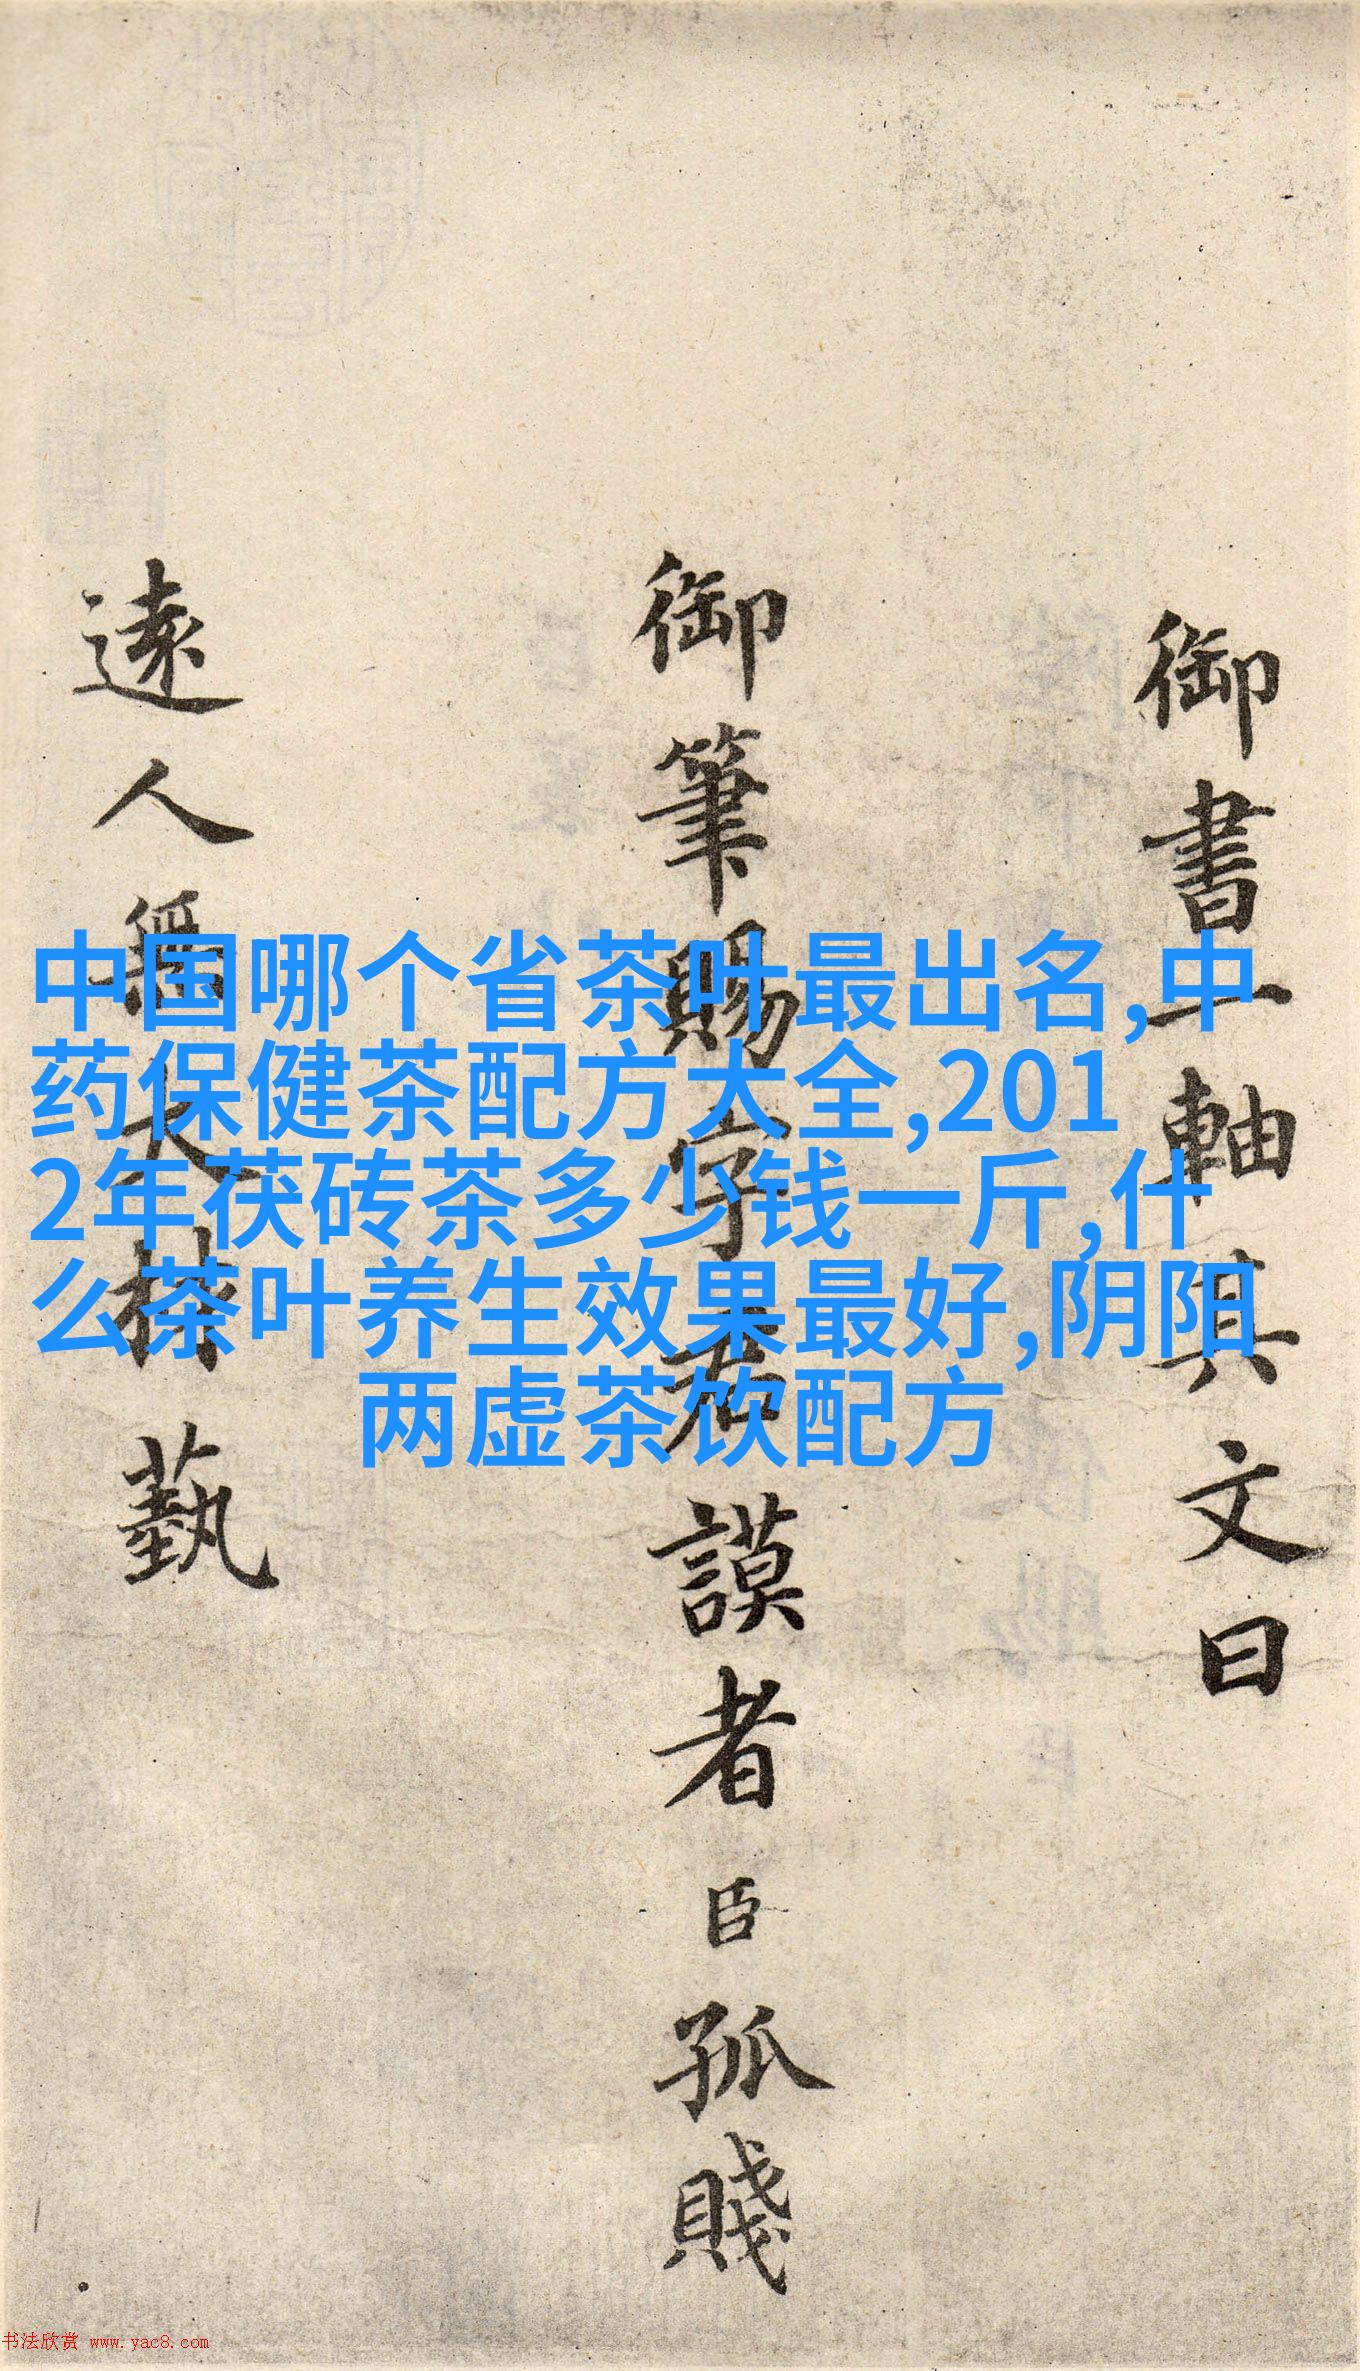 御書一軸其文曰
御筆賜字君謨者臣孤賤
遠人無大材藝
中国哪个省茶叶最出名,中
药保健茶配方大全,201
2年茯砖茶多少钱一斤,什
么茶叶养生效果最好,阴阳
两虚茶饮配方
书法欣赏 www.yac8.com